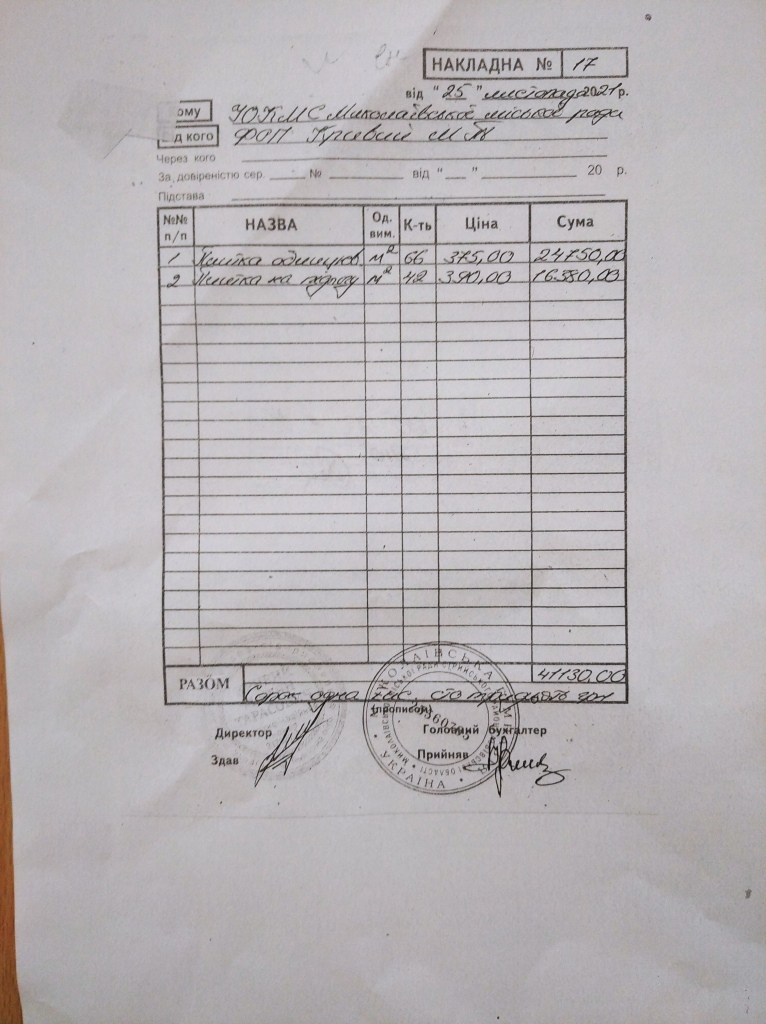 НАКЛАДНА № 17
від "25" листопада 2021 р.
Кому ЮКМС Миколаївської міської ради
Від кого ФОП М
Через кого
За довіреністю сер. № від " " 20 р.
Підстава
№№ п/п НАЗВА Од. вим. К-ть Ціна Сума
1 Плитка м² 66 375,00 24750,00
2 Плитка на м² 42 390,00 16380,00
41130,00
РАЗОМ Сорок одна тис сто тридцять грн
(прописом)
Директор Головний бухгалтер
Здав Прийняв
УКРАЇНА